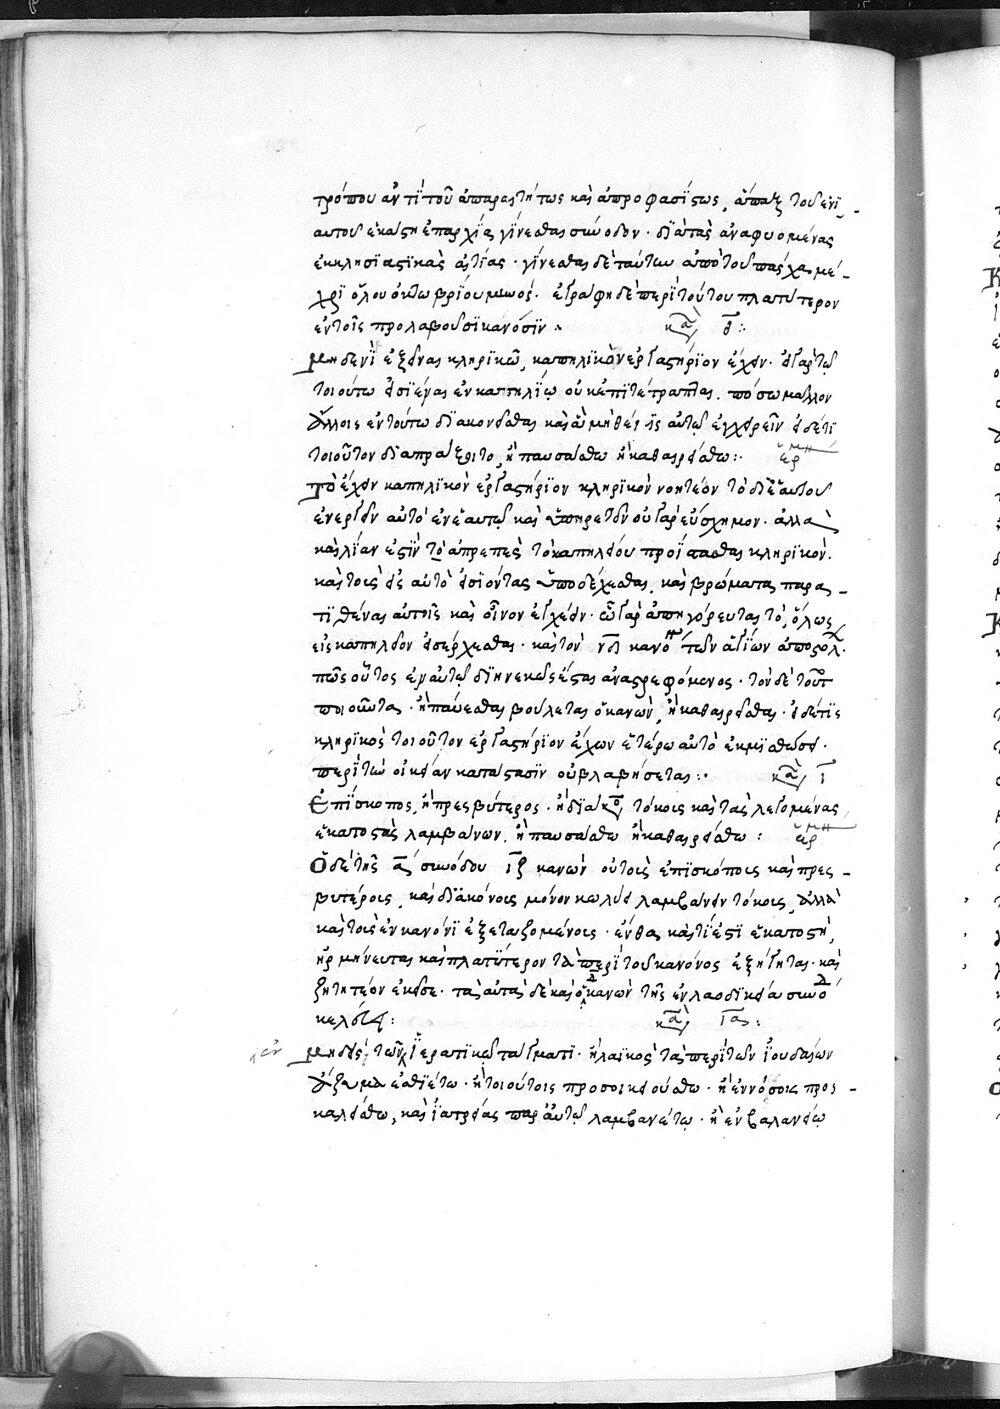 τρόπου ἀντὶ τοῦ ἀπαραιτήτως καὶ ἀπροφασίστως, ἅπαξ τοῦ ἐνι-
αυτοῦ ἐν ἑκάστη ἐπαρχία γίνεσθαι σύνοδον· διὰ τὰς ἀναφυομένας
ἐκκλησιαστικὰς αἰτίας· γίνεσθαι δὲ ταύτην ἀπὸ τοῦ πάσχα μέ-
χρι ὅλου ὀκτωβρίου μηνός. ἐγράφη δὲ περὶ τούτου πλατύτερον
ἐν τοῖς προλαβοῦσι κανόσιν. κα θ:
μηδενὶ ἐξεῖναι κληρικῶ, καπηλικὸν ἐργαστήριον ἔχειν· εἰ γὰρ τῶ
τοιούτω εἰσιέναι ἐν καπηλίω οὐκ ἐπιτέτραπται. πόσω μᾶλλον
ἄλλοις ἐν τούτω διακονεῖσθαι καὶ ἃ μὴ θέμις αὐτῶ ἐγχειρεῖν εἰ δέ τι
τοιοῦτον διαπράξοιτο, ἢ παυσάσθω ἢ καθαιρείσθω: ἑρμη
τὸ ἔχειν καπηλικὸν ἐργαστήριον κληρικὸν νοητέον τὸ δι' ἑαυτοῦ
ἐνεργεῖν αὐτὸ ἐν ἑαυτῶ καὶ ὑπηρετεῖν οὐ γὰρ εὔσχημον· ἀλλὰ
καὶ λίαν ἐστὶν τὸ ἀπρεπὲς τὸ καπηλείου προΐστασθαι κληρικὸν.
καὶ τοὺς εἰς αὐτὸ εἰσιόντας ὑποδέχεσθαι. καὶ βρώματα παρα-
τιθέναι αὐτοῖς καὶ οἶνον ἐγχέειν· ὧ γὰρ ἀπηγόρευται τὸ, ὅλως
εἰς καπηλεῖον εἰσέρχεσθαι· κατὰ τὸν νδ κανο τῶν ἁγίων ἀποστολ.
πῶς οὗτος ἐν αὐτῶ διηνεκῶς ἔσται ἀναστρεφόμενος· τὸν δὲ τοῦτ
ποιοῦντα· ἢ παύεσθαι βούλεται ὁ κανών, ἢ καθαιρεῖσθαι· εἰ δέ τις
κληρικὸς τοιοῦτον ἐργαστήριον ἔχων ἑτέρω αὐτὸ ἐκμισθώσει·
περὶ τὴν οἰκείαν κατάστασιν οὐ βλαβήσεται: κα ι
Ἐπίσκοπος, ἢ πρεσβύτερος· ἢ διάκο, τόκους καὶ τὰς λεγομένας,
ἑκατοστὰς λαμβάνων, ἢ παυσάσθω ἢ καθαιρείσθω: ἑρμη
Ὁ δὲ τῆς α συνόδου ιζ κανὼν οὐ τοῖς ἐπισκόποις καὶ πρες-
βυτέροις, καὶ διακόνοις μόνον κωλύει λαμβάνειν τόκους, ἀλλὰ
καὶ τοὺς ἐν κανόνι ἐξεταζομένοις· ἔνθα καὶ τί ἐστι ἑκατοστὴ,
ἡρμήνευται καὶ πλατύτερον τὰ περὶ τοῦ κανόνος ἐξήγηται· καὶ
ζητητέον ἐκεῖσε· τὰ αὐτὰ δὲ καὶ ὁ δ κανὼν τῆς ἐν λαοδικεία συνό
κελεύει: κα ια:
μηδεὶς τῶν ἐν ἱερατικῶ τάγματι· ἢ λαϊκὸς τὰ περὶ τῶν ἰουδαίων
ἄζυμα ἐσθιέτω· ἢ τοιούτοις προσοικειούσθω· ἢ ἐν νόσοις προς-
καλείσθω, καὶ ἰατρείας παρ' αὐτῶ λαμβανέτω· ἢ ἐν βαλανείω